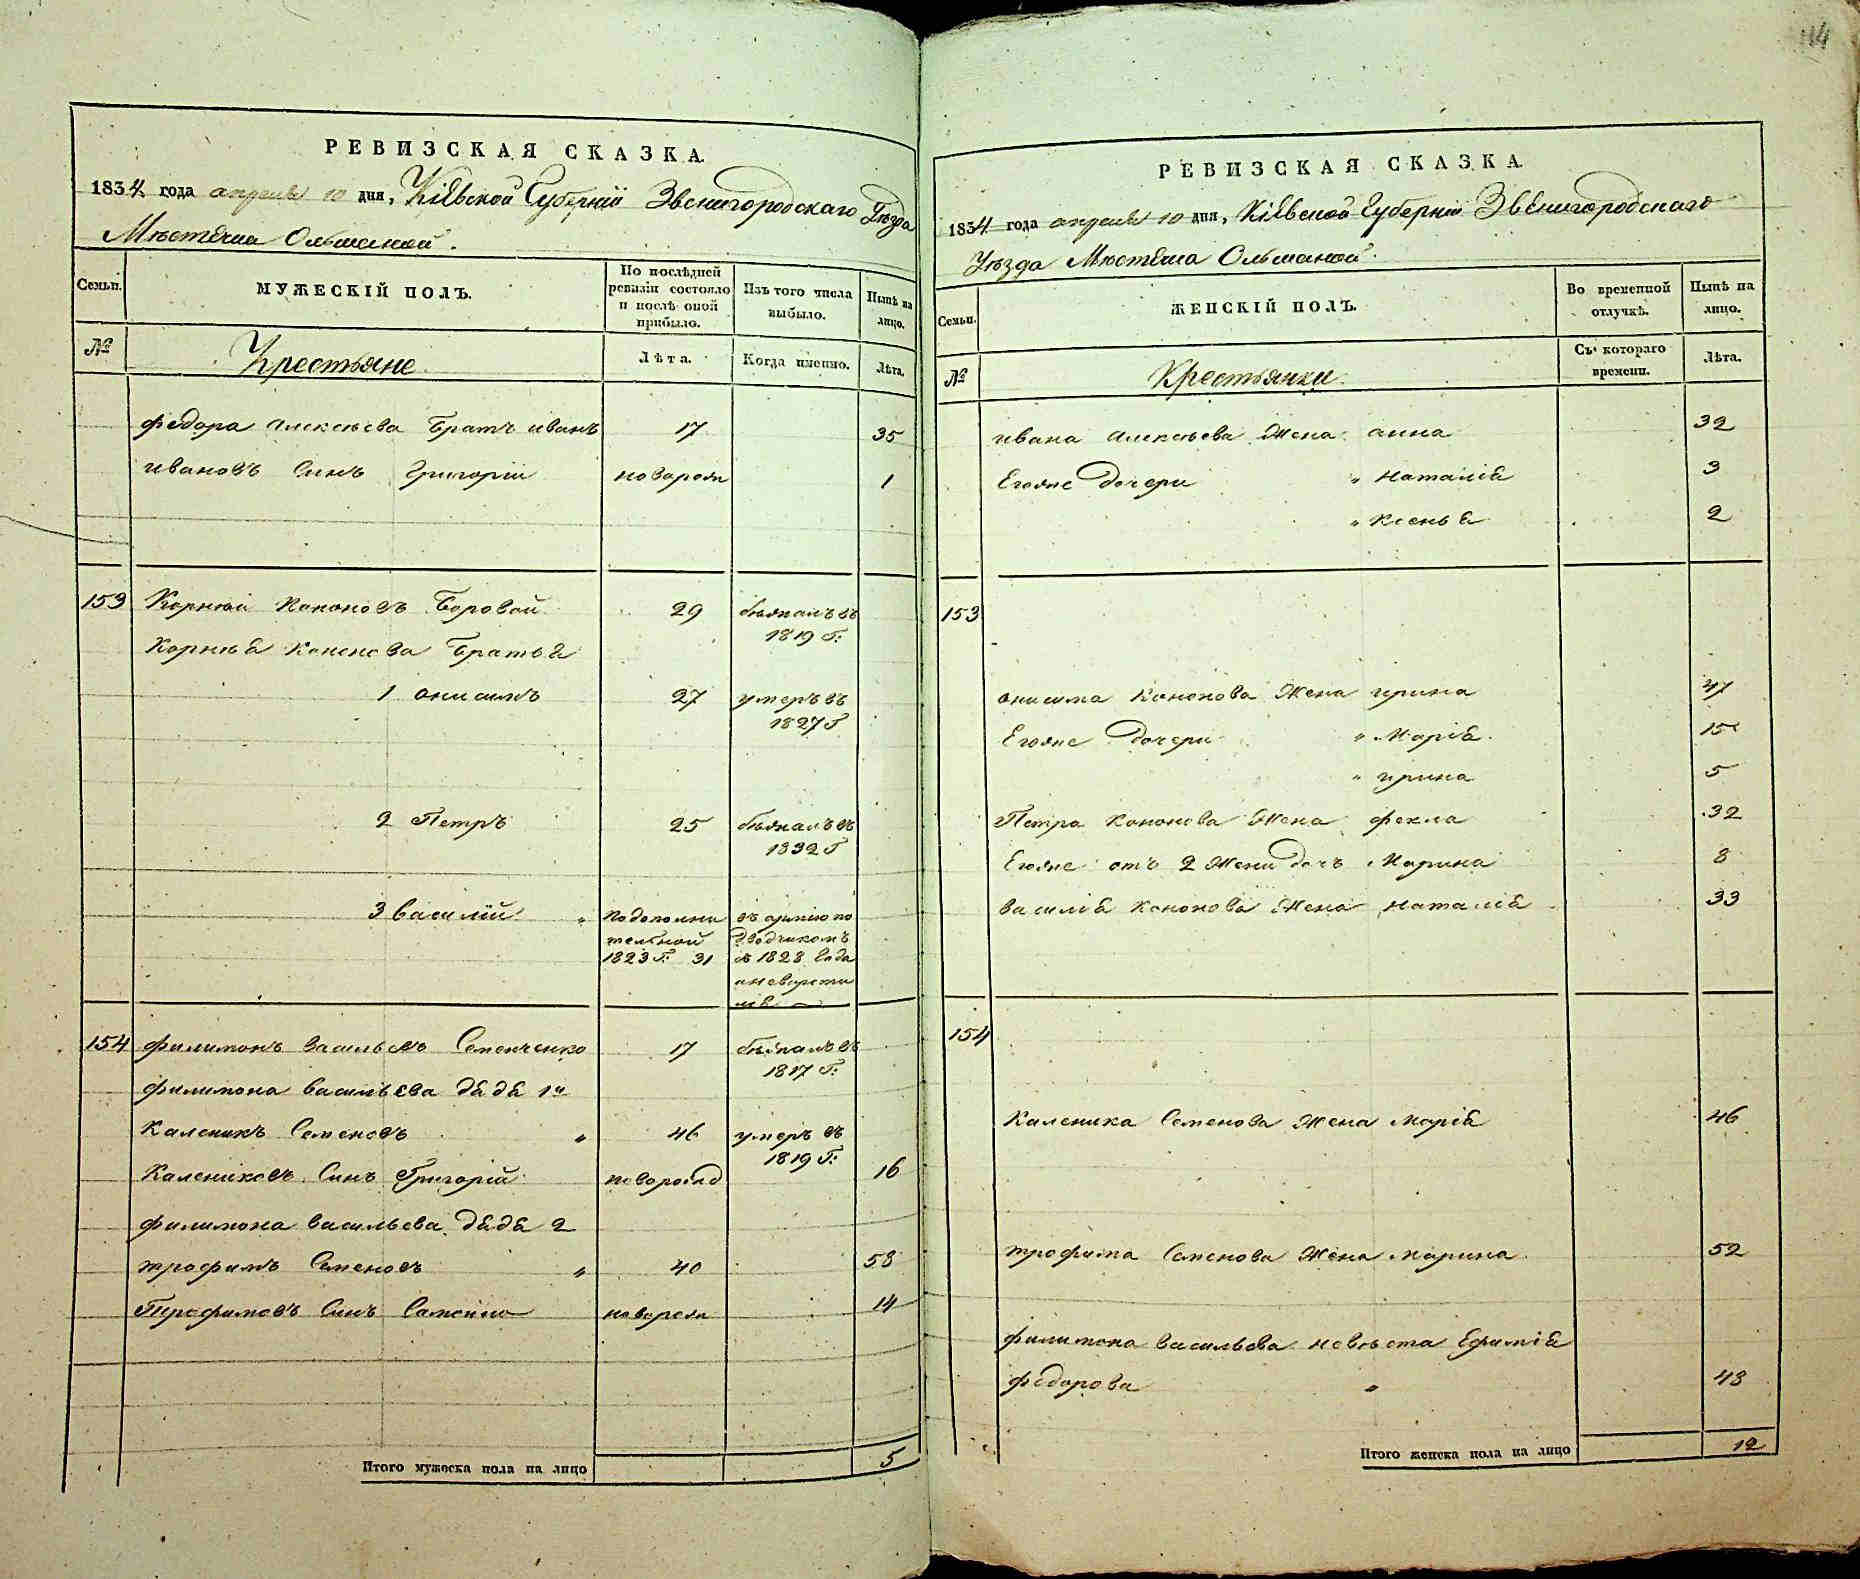 114
РЕВИЗСКАЯ СКАЗКА.
1834 года апреля 10 дня, Кіевской Губерніи Звенигородскаго Уѣзда
Мѣстечка Ольшаной.
Семьи.
МУЖЕСКІЙ ПОЛЪ.
По послѣдней ревизіи состояло и послѣ оной прибыло.
Изъ того числа выбыло.
Нынѣ на лицо.
№
Крестьяне
Лѣта.
Когда именно.
Лѣта.
Федора Алексѣева Братъ иванъ 17 35
ивановъ Синъ Григорій новорож 1
153 Корнѣй Кононовъ Боровой 29 бѣжалъ въ
1819 Г:
Корнѣя Кононова Братья
1 онисимъ 27 умеръ въ
1827 Г
2 Петръ 25 бѣжалъ въ
1832 Г
3 василій " по дополни въ армію по
тельной водчикомъ
1823 Г: 31 в 1828 Года
и невороти
лся
154 филимонъ васильевъ Семенченко 17 бѣжалъ въ
1817 Г:
филимона васильева дядя 1й
Каленикъ Семеновъ " 46 умеръ въ
1819 Г:
Калениковъ Синъ Григорій новорожд 16
филимона васильева дядя 2
трофимъ Семеновъ " 40 58
Трофимовъ Синъ Самойло новорож 14
Итого мужеска пола на лицо 5
РЕВИЗСКАЯ СКАЗКА.
1834 года апреля 10 дня, Кіевской Губерніи Звенигородскаго
Уѣзда Мѣстечка Ольшаной.
Семьи.
ЖЕНСКІЙ ПОЛЪ.
Во временной отлучкѣ.
Нынѣ на лицо.
№
Крестьянки
Съ котораго времени.
Лѣта.
ивана Алексѣева Жена анна 32
Егоже дочери " наталія 3
" Ксенья 2
153
онисима Кононова Жена ирина 47
Егоже дочери " Марія 15
" ирина 5
Петра Кононова Жена фекла 32
Егоже отъ 2 Жени дочъ Марина 8
василія Кононова Жена наталія 33
154
Каленика Семенова Жена марія 46
трофима Семенова Жена марина 52
филимона васильева невѣста Ефимія
федорова " 43
Итого женска пола на лицо 12